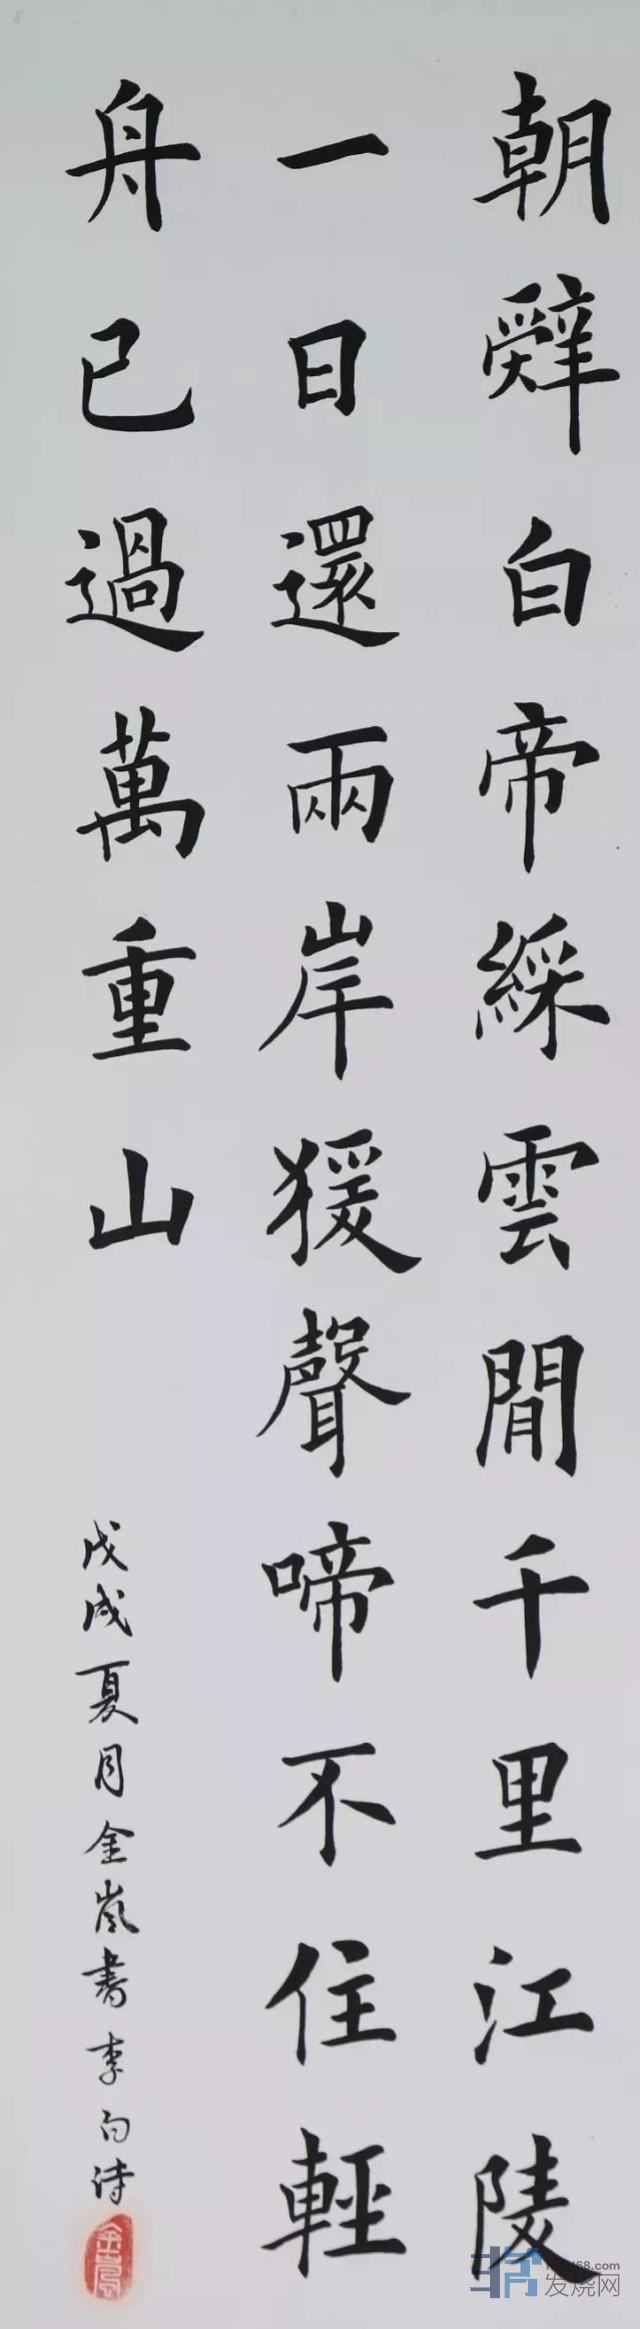 朝辤白帝綵雲間千里江陵
一日還兩岸猨聲啼不住輕
舟已過萬重山
戊戌夏月金嵐書李白詩
金嵐
168.com
发烧网